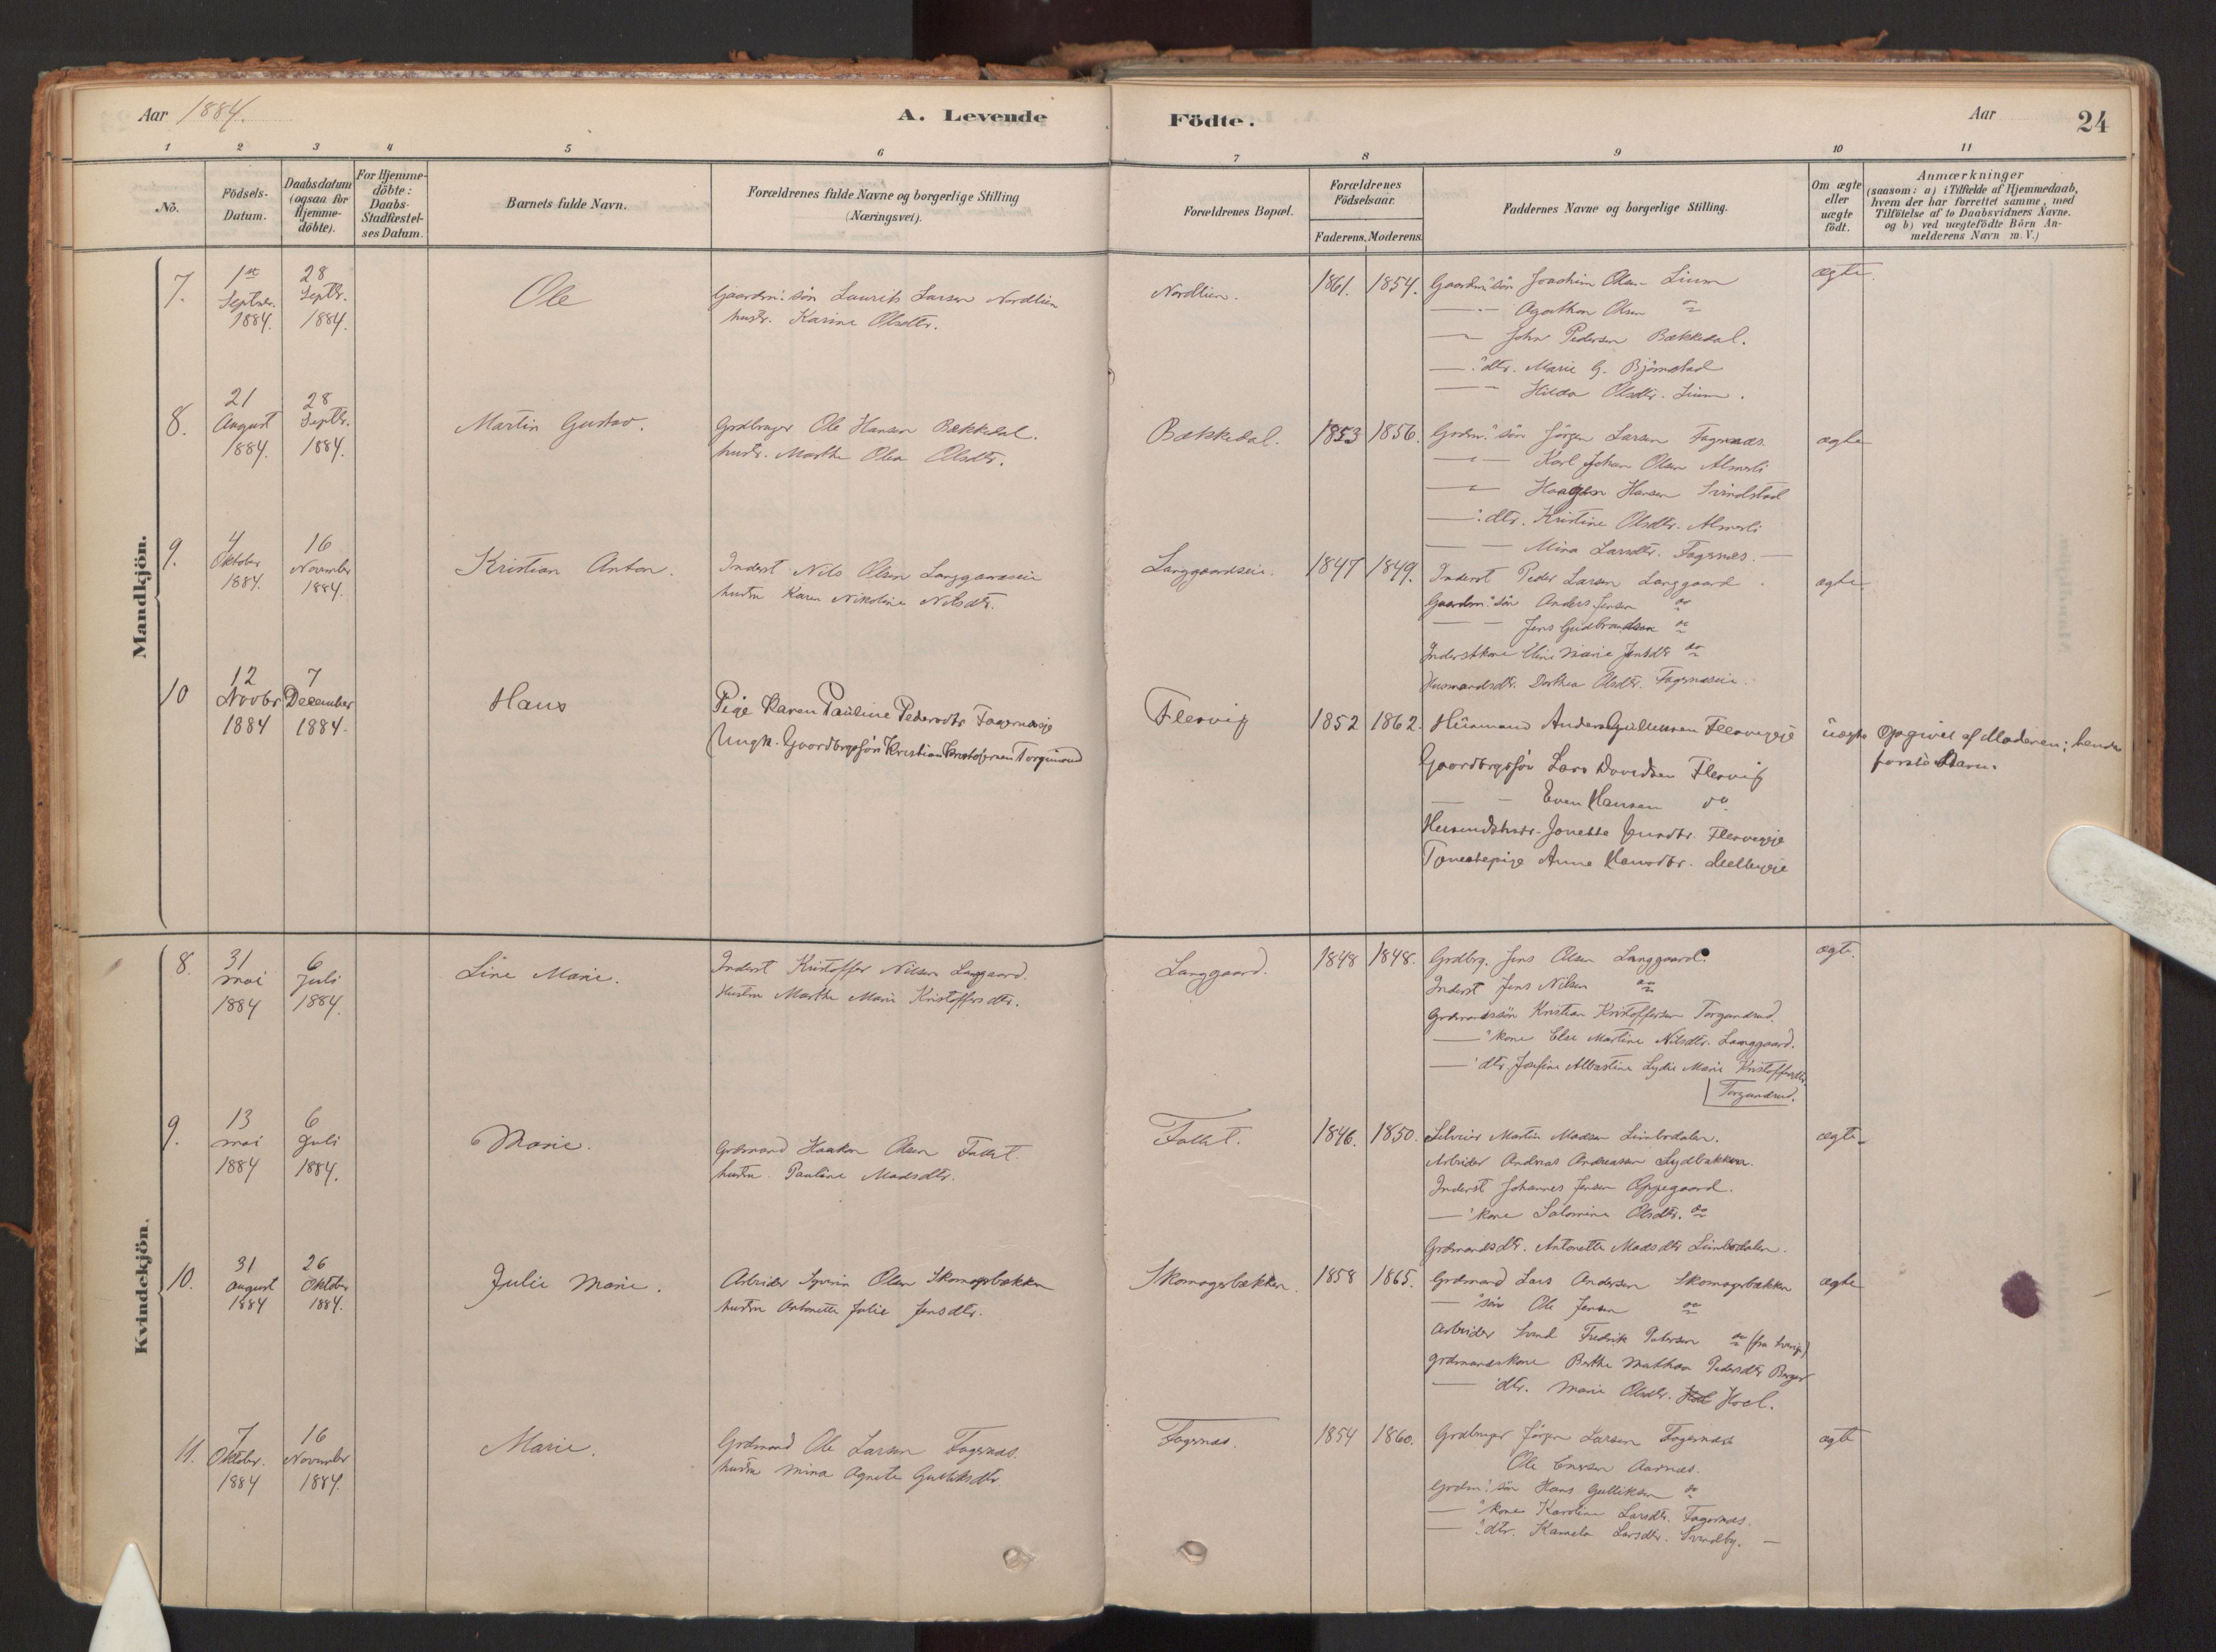 Aar 1884.
A. Levende
Födte.
Aar
24
1 2 3 4 5 6 7 8 9 10 11
No.
Födsels-
Datum.
Daabsdatum
(ogsaa for
Hjemme-
döbte).
For Hjemme-
döbte:
Daabs-
Stadfæstel-
ses Datum.
Barnets fulde Navn.
Forældrenes fulde Navne og borgerlige Stilling
(Næringsvei).
Forældrenes Bopæl.
Forældrenes
Födselsaar.
Faderens. Moderens.
Faddernes Navne og borgerlige Stilling.
Om ægte
eller
uægte
födt.
Anmærkninger
(saasom: a) i Tilfælde af Hjemmedaab,
hvem der har forrettet samme, med
Tilföielse af to Daabsvidners Navne.
og b) ved uægtefödte Börn An-
melderens Navn m. V.)
Mandkjön.
7.
1ste
Septbr.
1884.
28
Septbr.
1884.
Ole
Gaardm. søn Laurits Larsen Nordlien
hustr. Karine Olsdtr.
Nordlien.
1861. 1854.
Gaardm. søn Joachim Olsen Lium
— Agathon Olsen do
— John Pedersen Bækkedal.
— dtr. Marie G. Björnstad
— Hilda Olsdtr. Lium.
ægte.
8.
21
August
1884.
28
Septbr.
1884.
Martin Gustav.
Grdbruger Ole Hansen Bækkedal.
hustr. Marthe Olea Olsdtr.
Bækkedal.
1853 1856.
Grdm. søn Jörgen Larsen Fagernæs
— Karl Johan Olsen Almerli
— Haagen Hansen Svindstad
— dtr. Kristine Olsdtr. Almerli
— Mina Larsdtr. Fagernæs. —
ægte
9.
4
Oktober
1884.
16
November
1884.
Kristian Anton.
Inderst Nils Olsen Langgaardseie
hustru Karen Nikoline Nilsdtr.
Langgaardseie.
1847 1849.
Inderst Peder Larsen Langgaard
Gaardm. søn Anders Jensen do
— Jens Gudbrandsen do
Inderstkone Eline Marie Jensdtr do
Husmandsdtr. Dorthea Olsdtr. Fagernæseie.
ægte
10
12
Novbr
1884
7
December
1884.
Hans
Pige Karen Pauline Pedersdtr Fagernæseje
Ungk. Gaardbrgssøn Kristian Kristofersen Torgunrud
Flesvig
1852 1862.
Husmand Anders Gulliksen Flesvigeje
Gaardbrgssøn Lars Davidsen Flesvig
— Even Hansen do
Husmdshstr. Jonette Gundtr. Flesvigeje
Tjenestepige Anne Hansdtr.
uægte
Opgivet af Moderen; hendes
første Barn.
Kvindekjön.
8.
31
mai
1884
6
Juli
1884.
Line Marie.
Inderst Kristoffer Nilsen Langgaard.
Hustru Marthe Marie Kristoffersdtr.
Langgaard.
1848 1848.
Grdbrg. Jens Olsen Langgaard.
Inderst Jens Nilsen do
Grdmandssön Kristian Kristoffersen Torgundrud.
— kone Else Martine Nilsdtr. Langgaard.
— dtr. Josefine Albertine Lydie Marie Kristoffersdtr.
Torgundrud.
ægte.
9.
13
mai
1884
6
Juli
1884.
Marie.
Grdmand Haakon Olsen Falkt
hustru. Pauline Madsdtr.
Falkt.
1846. 1850.
Selveier Martin Madsen Limbodalen.
Arbeider Andreas Andreassen Lydbakken.
Inderst Johannes Jensen Oppegaard.
— kone Salomine Olsdtr. do
Grdmandsdtr. Antonette Madsdtr Limbodalen.
ægte
10.
31
august
1884
26
Oktober
1884.
Julie Marie.
Arbeider Syverin Olsen Skomagerbakken
hustru Antonette Julie Jensdtr.
Skomagerbakken.
1858 1865.
Grdmand Lars Andersen Skomagerbakken
— sön Ole Jensen do
Arbeider Svend Fredrik Petersen do (fra Sverige)
Grdmandskone Berthe Mathea Pedersdtr Berger
— dtr. Marie Olsdtr. Hoel.
ægte
11.
7
Oktober.
1884
16
November
1884.
Marie.
Grdmand Ole Larsen Fagernæs.
hustru Mina Agnete Gulliksdtr.
Fagernæs.
1854 1860.
Grdbruger Jörgen Larsen Fagernæs
Ole Enersen Aarnæs.
Grdm. sön Hans Gulliksen do
— kone Karoline Larsdtr. Fagernæs.
— dtr. Kamela Larsdtr. Svendby. —
ægte